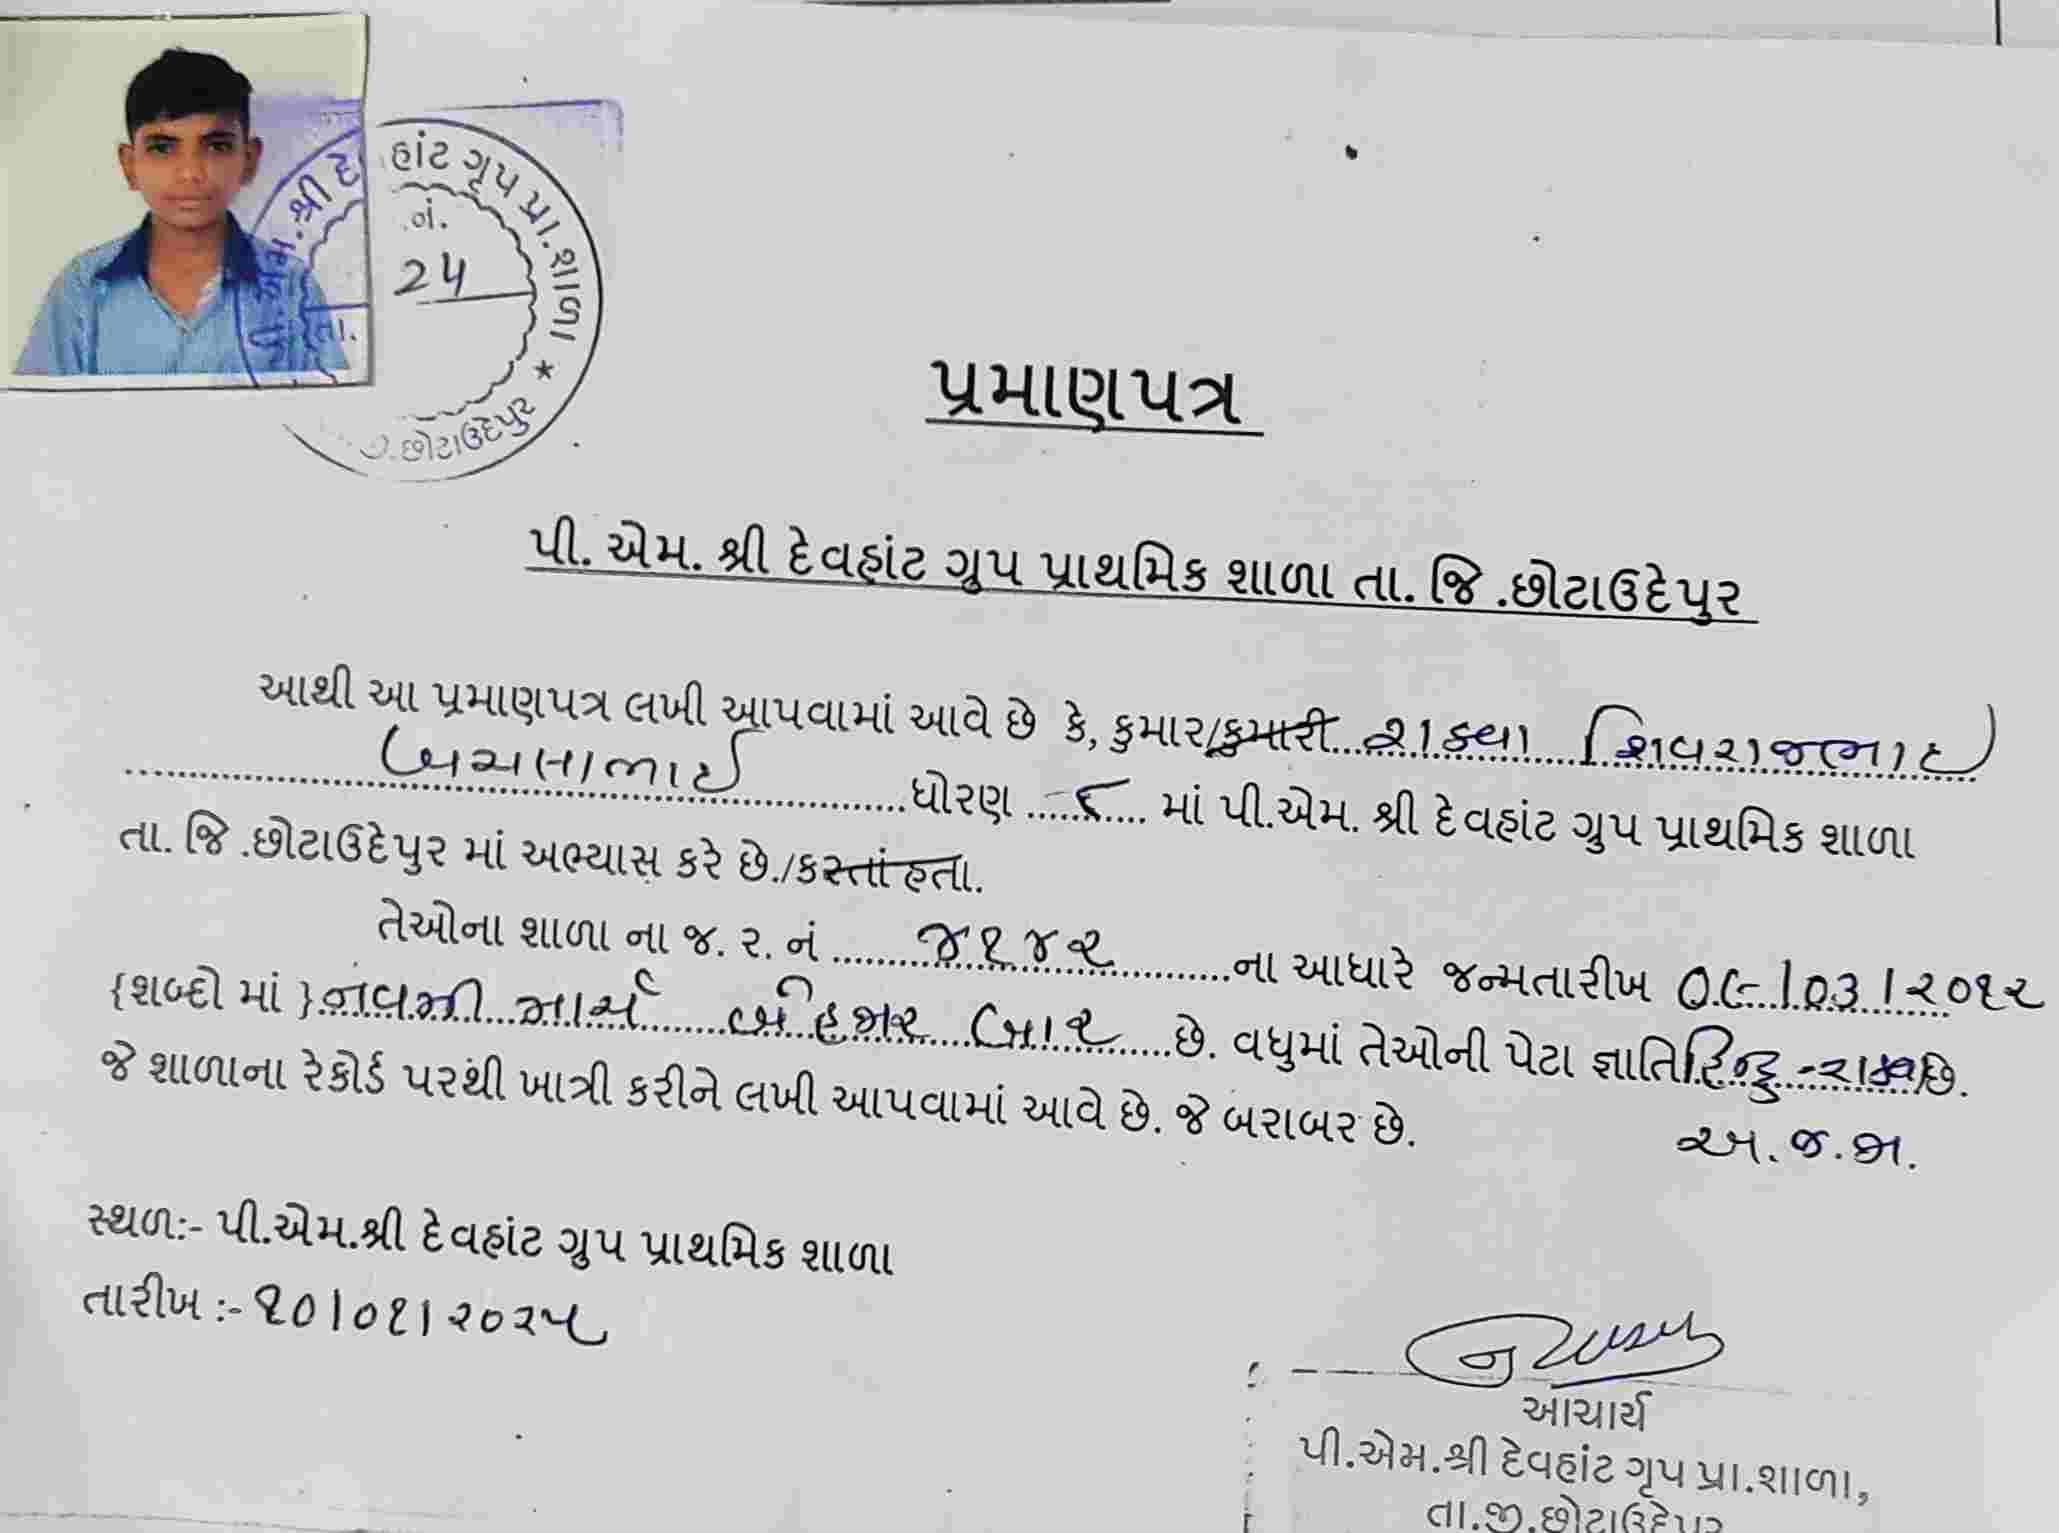 પી.એમ.શ્રી દેવહાંટ ગૃપ પ્રા.શાળા
નં.
24
તા.
છોટાઉદેપુર
પ્રમાણપત્ર
પી. એમ. શ્રી દેવહાંટ ગ્રુપ પ્રાથમિક શાળા તા. જિ .છોટાઉદેપુર
આથી આ પ્રમાણપત્ર લખી આપવામાં આવે છે કે, કુમાર/કુમારી રાઠવા શિવરાજભાઈ
ધોરણ ૮ માં પી.એમ. શ્રી દેવહાંટ ગ્રુપ પ્રાથમિક શાળા
તા. જિ .છોટાઉદેપુર માં અભ્યાસ કરે છે./કરતાં હતા.
તેઓના શાળા ના જ. ર. નં ૪૧૪૨ ના આધારે જન્મતારીખ ૦૯/૦૩/૨૦૧૨
{શબ્દો માં }નવમી માર્ચ બેહજાર બાર છે. વધુમાં તેઓની પેટા જ્ઞાતિ હિન્દુ -રાઠવા છે.
જે શાળાના રેકોર્ડ પરથી ખાત્રી કરીને લખી આપવામાં આવે છે. જે બરાબર છે.
અ.જ.જા.
સ્થળ:- પી.એમ.શ્રી દેવહાંટ ગ્રુપ પ્રાથમિક શાળા
તારીખ :- ૧૦/૦૧/૨૦૨૫
આચાર્ય
પી.એમ.શ્રી દેવહાંટ ગૃપ પ્રા.શાળા,
તા.જી.છોટાઉદેપુર